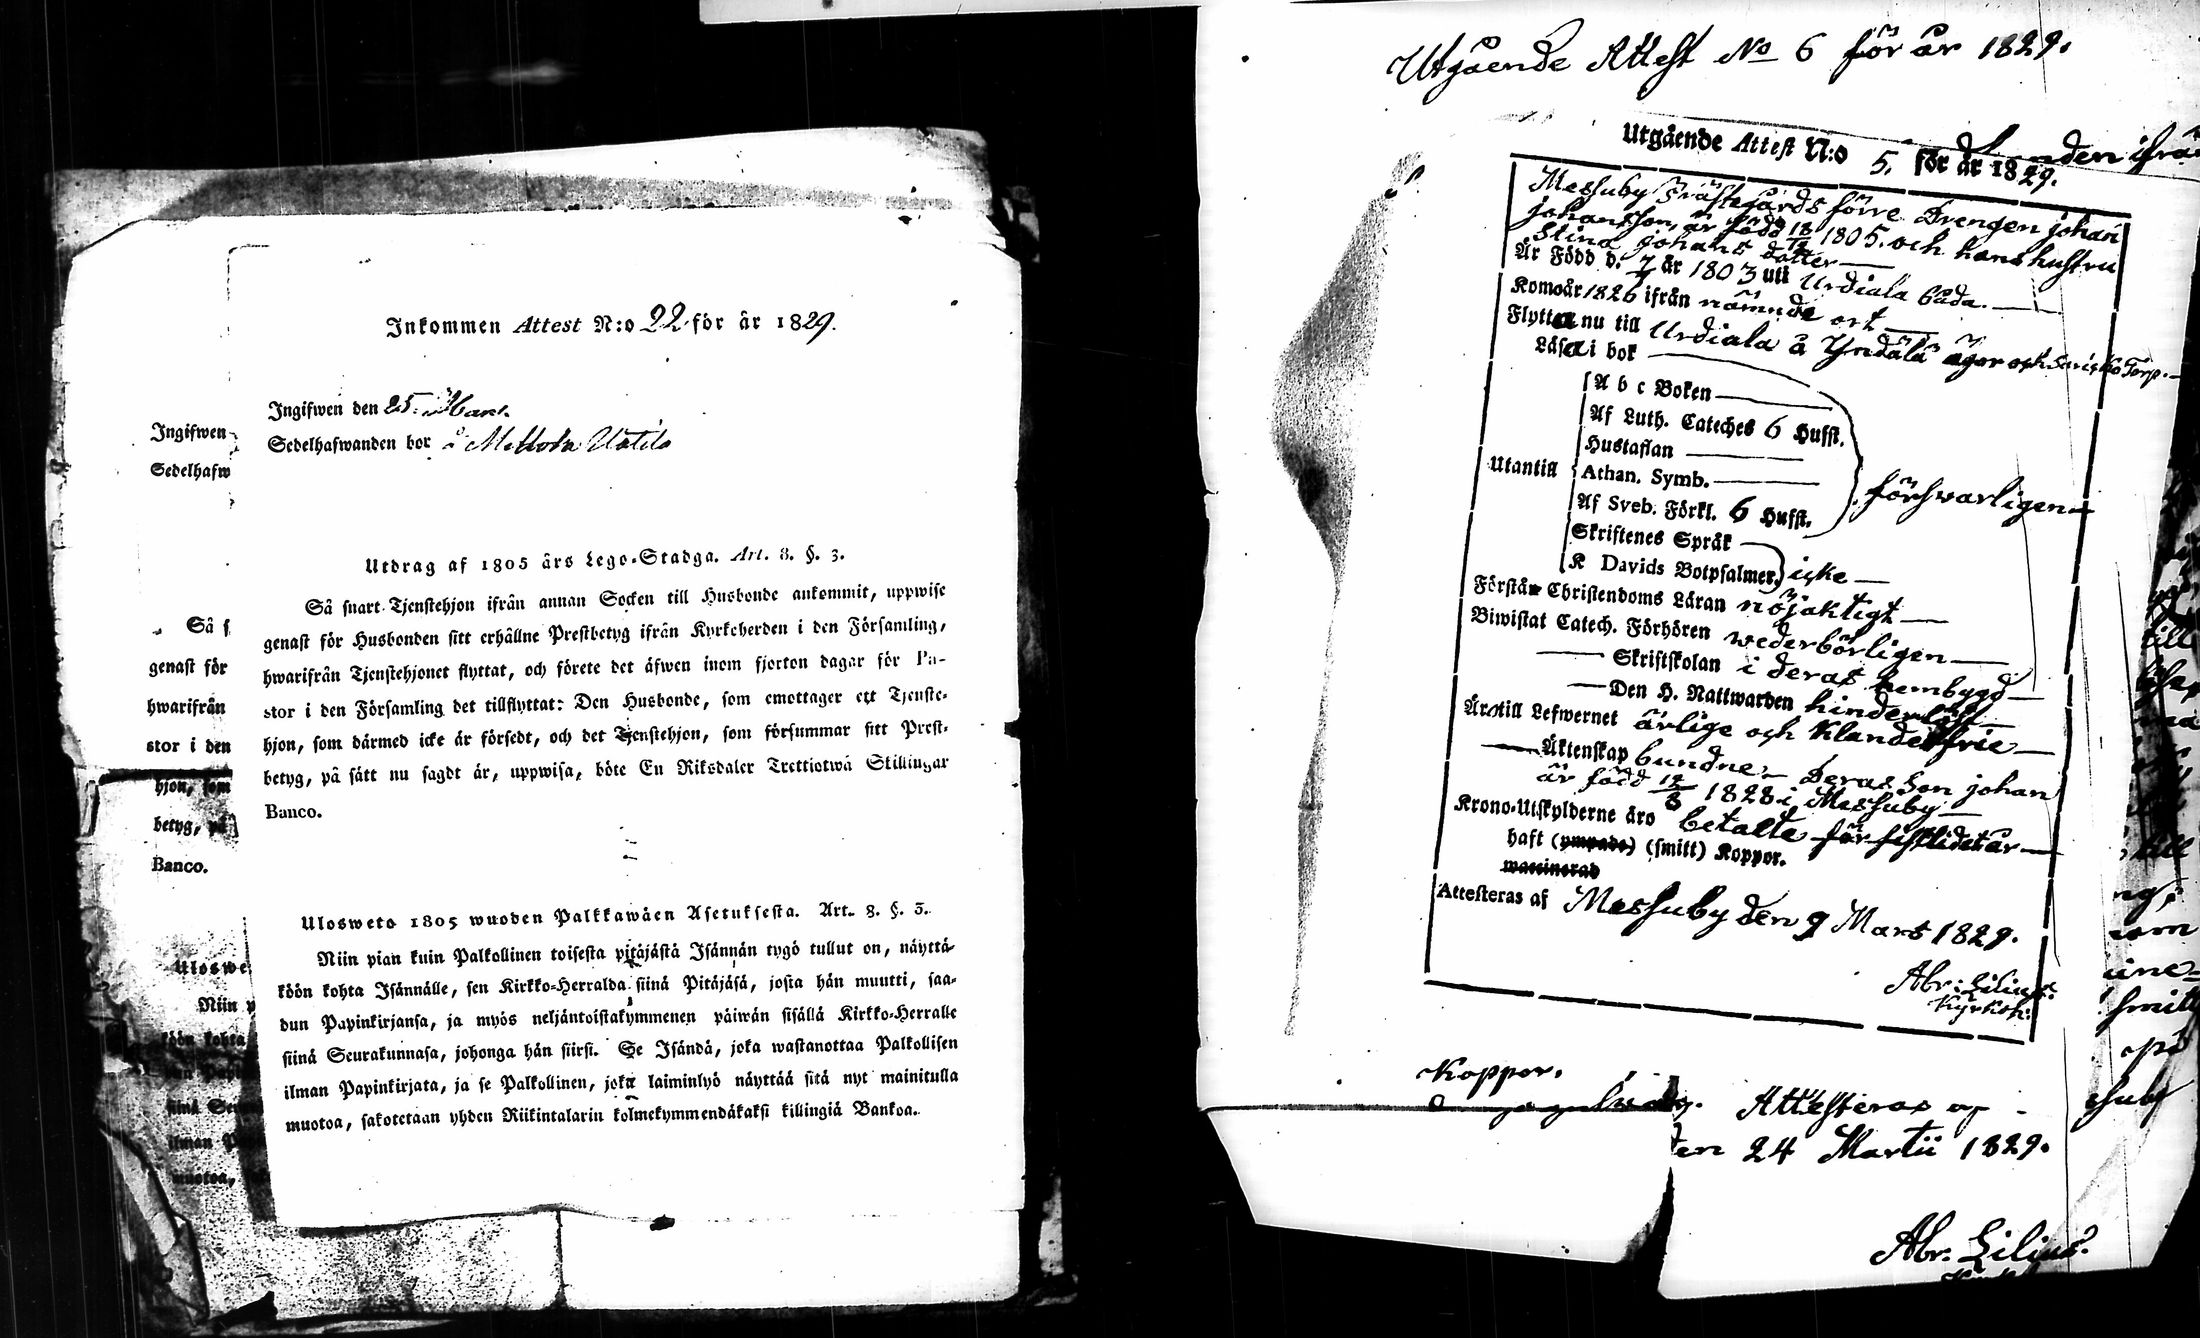 Inkommen Attest N:o 22 för år 1829.
Ingifwen den 25 Mars.
Sedelhafwanden bor å Mellola Uotila
Utdrag af 1805 års Lego-Stadga. Art. 8. §. 3.
Så snart Tjenstehjon ifrån annan Socken till Husbonde ankommit, uppwise
genast för Husbonden sitt erhållne Prestbetyg ifrån Kyrkoherden i den Församling,
hwarifrån Tjenstehjonet flyttat, och förete det äfwen inom fjorton dagar för Pa-
stor i den Församling det tillflyttat: Den Husbonde, som emottager ett Tjenste-
hjon, som därmed icke är försedt, och det Tjenstehjon, som försummar sitt Prest-
betyg, på sätt nu sagdt är, uppwisa, böte En Riksdaler Trettiotwå Skillingar
Banco.
Ulosweto 1805 wuoden Palkkawäen Asetuksesta. Art. 8. §. 3.
Niin pian kuin Palkollinen toisesta pitäjästä Isännän tygö tullut on, näyttä-
köön kohta Isännälle, sen Kirkko-Herralda siinä Pitäjäsä, josta hän muutti, saa-
dun Papinkirjansa, ja myös neljäntoistakymmenen päiwän sisällä Kirkko-Herralle
siinä Seurakunnasa, johonga hän siirsi. Se Isändä, joka wastanottaa Palkollisen
ilman Papinkirjata, ja se Palkollinen, joka laiminlyö näyttää sitä nyt mainitulla
muotoa, sakotetaan yhden Riikintalarin kolmekymmendäkaksi killingiä Bankoa.
Ingifwen
Sedelhafw
Så s
genast för
hwarifrån
stor i den
hjon, som
betyg, på
Banco.
Uloswe
Niin p
köön kohta
Utgående Attest No 6 för år 1829.
Utgående Attest N:o 5. för år 1829.
Messuby Prästegårds förre Drengen johan
johansson, är född 18/12 1805. och hans hustru
Stina johans dotter
Är Född d. 7/7 år 1803 uti Urdiala båda.
Kom år 1826 ifrån nämnde ort
Flytta nu till Urdiala å Yndälä ägor och Torp.
Läsa i bok
A b c Boken
Af Luth. Cateches 6 Hufst.
Hustaflan
Utantill Athan. Symb.
Af Sveb. Förkl. 6 Hufst. försvarligen
Skriftenes Språk
K Davids Botpsalmer icke
Förstår Christendoms Läran nöjaktigt
Biwistat Catech. Förhören wederbörligen
Skriftskolan i deras hembygd
Den H. Nattwarden hinderlöst
Är till Lefwernet ärlige och klanderfrie
Äktenskap bundne Deras Son johan
är född 12/8 1828 i Messuby
Krono-Utskylderne äro betalte för sistlidet år
haft (ympade) (smitt) Koppor.
waccinerad
Attesteras af Messuby den 9 Mars 1829.
Abr: Lilius.
Kyrkoh:
Koppor.
Attesteras af
den 24 Martii 1829.
Abr. Lilius.